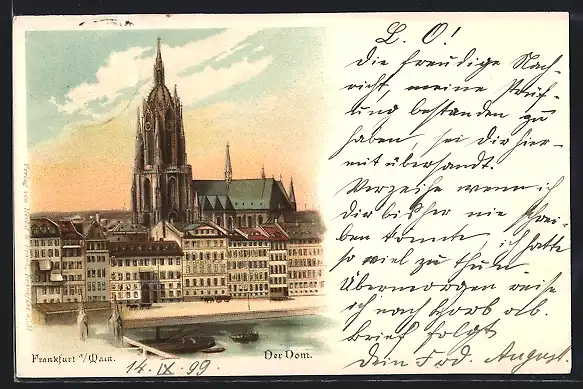 L. O!
Die freudige Nach-
richt, meine Prüf-
ung bestanden zu
haben, sei Dir hier-
mit übersandt.
Verzeihe wenn ich
Dir bisher nie schrei-
ben konnte, ich hatte
so viel zu thun.
Übermorgen reise
ich nach Horb ab.
Brief folgt
Dein Frd. August.
Frankfurt a/Main.
Der Dom.
14. IX 99.